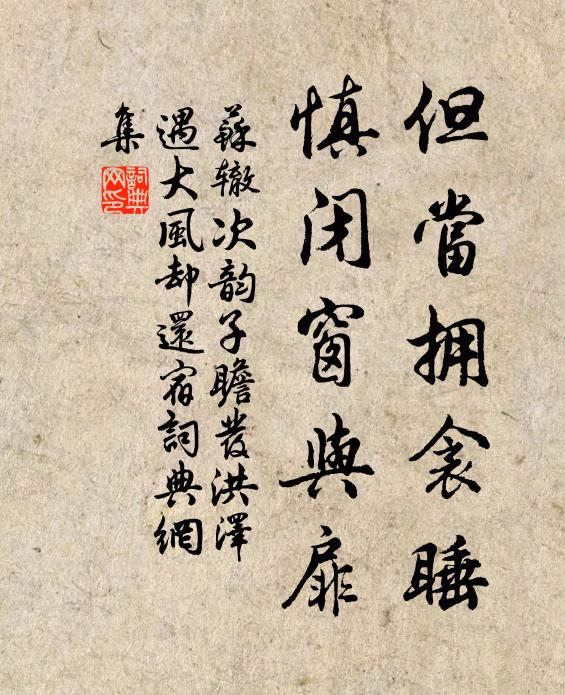 但當拥衾睡
慎闭窗與扉
蘇辙次韵子瞻發洪澤
遇大風却還宿詞典網
集
詞典
网印